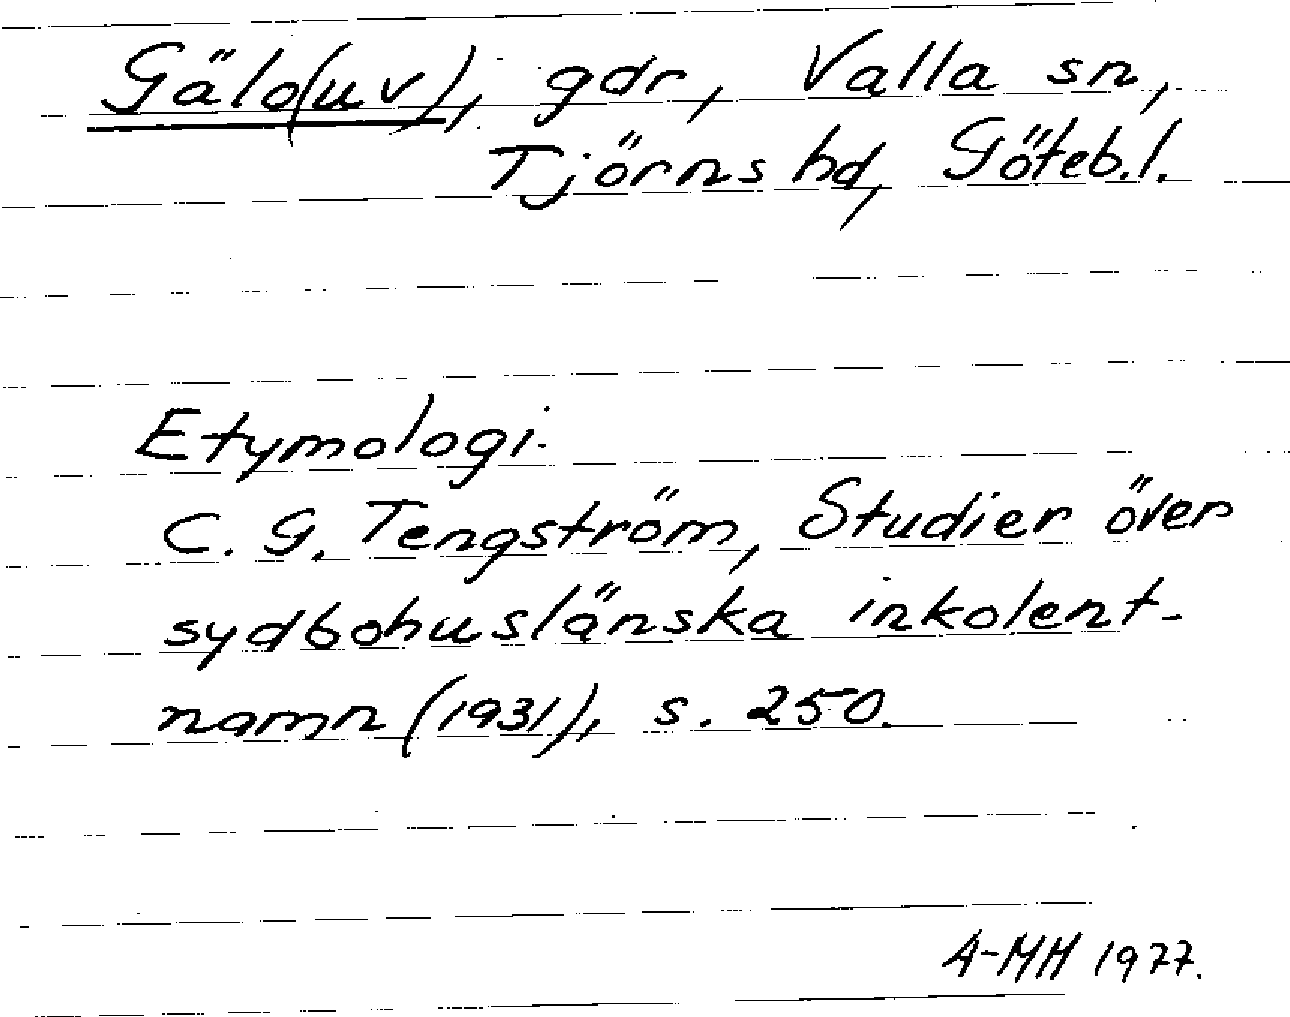 Gälo(uv), gdr, Valla sn,
Tjörns hd, Göteb.l.
Etymologi.
C. G. Tengström, Studier över
sydbohuslänska inkolent-
namn (1931), s. 250.
A-MH 1977.